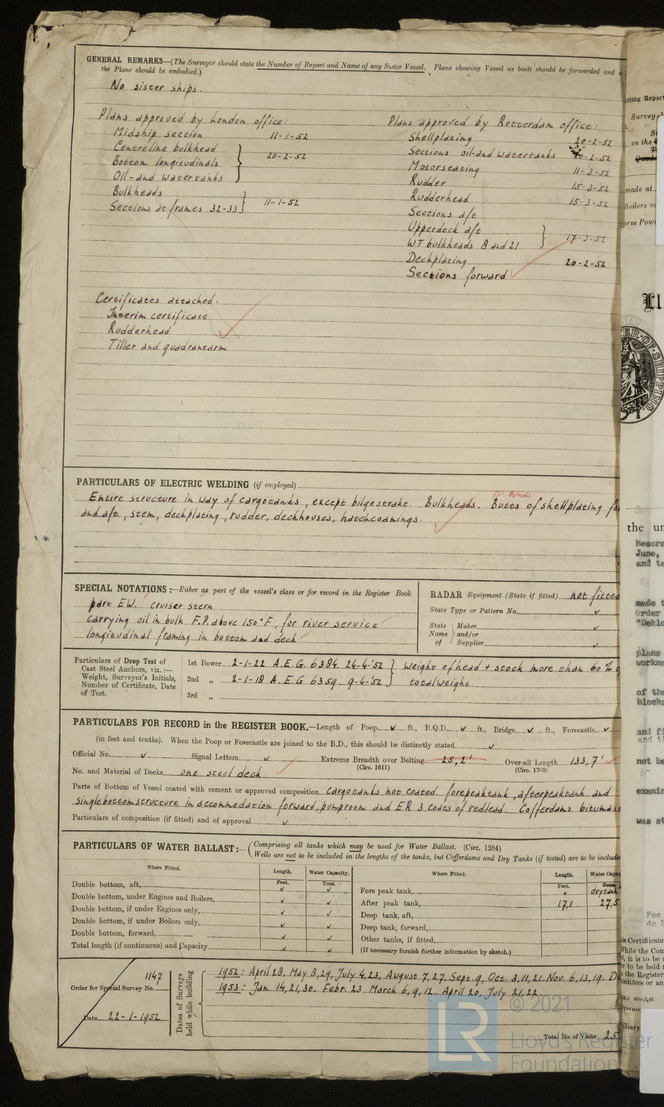 GENERAL REMARKS—(The Surveyor should state the Number of Report and Name of any Sister Vessel. Plans showing Vessel as built should be forwarded and
the Plans should be embodied.)
No sister ships.
Plans approved by London office:
Midship section 11-1-52
Centreline bulkhead
Bottom longitudinals 20-2-52
Oil- and watertanks
Bulkheads
Sections at frames 32-33 11-1-52
Plans approved by Rotterdam office:
Shellplating 20-2-52
Sections oil-and watertanks 20-2-52
Motorseating 11-3-52
Rudder 15-3-52
Rudderhead 15-3-52
Sections aft
Upperdeck aft
WT bulkheads 8 and 21 17-3-52
Deckplating 20-2-52
Sections forward
Certificates attached:
Interim certificate
Rudderhead
Tiller and quadrantarm
PARTICULARS OF ELECTRIC WELDING (if employed)
Entire structure in way of cargotanks, except bilgestrake. Bulkheads. Butts of shellplating
and aft, stem, deckplating, rudder, deckhouses, hatchcoamings.
SPECIAL NOTATIONS:—Either as part of the vessel's class or for record in the Register Book
part EW. cruiser stern
carrying oil in bulk F.P. above 150°F, for river service
longitudinal framing in bottom and deck
RADAR Equipment (State if fitted) not fitted
State Type or Pattern No.
State Maker
Name and/or
of Supplier
Particulars of Drop Test of
Cast Steel Anchors, viz.:—
Weight, Surveyor's Initials,
Number of Certificate, Date
of Test.
1st Bower 2-1-22 A.E.G. 6384 24-4-52
2nd „ 2-1-18 A.E.G 6359 9-4-52
3rd „
Weight of head + stock more than 60%
total weight.
PARTICULARS FOR RECORD in the REGISTER BOOK.—Length of Poop ft., R.Q.D. ft., Bridge ft., Forecastle
(in feet and tenths). When the Poop or Forecastle are joined to the B.D., this should be distinctly stated
Official No. Signal Letters Extreme Breadth over Belting 25,2' Over-all Length 133,7'
(Circ. 1611) (Circ. 1703)
No. and Material of Decks one steel deck
Parts of Bottom of Vessel coated with cement or approved composition cargotanks not coated. forepeaktank, afterpeaktank and
singlebottomstructure in accommodation forward, pumproom and ER 3 coats of redlead. Cofferdams
Particulars of composition (if fitted) and of approval
PARTICULARS OF WATER BALLAST:—(Comprising all tanks which may be used for Water Ballast. (Circ. 1284)
Wells are not to be included in the lengths of the tanks, but Cofferdams and Dry Tanks (if tested) are to be
Where Fitted. Length. Water Capacity. Where Fitted. Length.
Feet. Tons. Feet.
Double bottom, aft,
Double bottom, under Engines and Boilers,
Double bottom, if under Engines only,
Double bottom, if under Boilers only,
Double bottom, forward,
Total length (if continuous) and Capacity
Fore peak tank, drytank
After peak tank, 17,1 27,5
Deep tank, aft,
Deep tank, forward,
Other tanks, if fitted,
(If necessary furnish further information by sketch.)
1147
Order for Special Survey No.
Date 22-1-1952
Dates of Surveys
held while building
1952: April 28, May 8, 29, July 4, 23, August 7, 27, Sept. 9, Oct. 3, 11, 21, Nov. 6, 13, 19.
1953: Jan. 14, 21, 30. Febr. 23 March 6, 9, 12. April 20, July 21, 22
Total No. of Visits 25
LR
© 2021
Lloyd's Register
Foundation